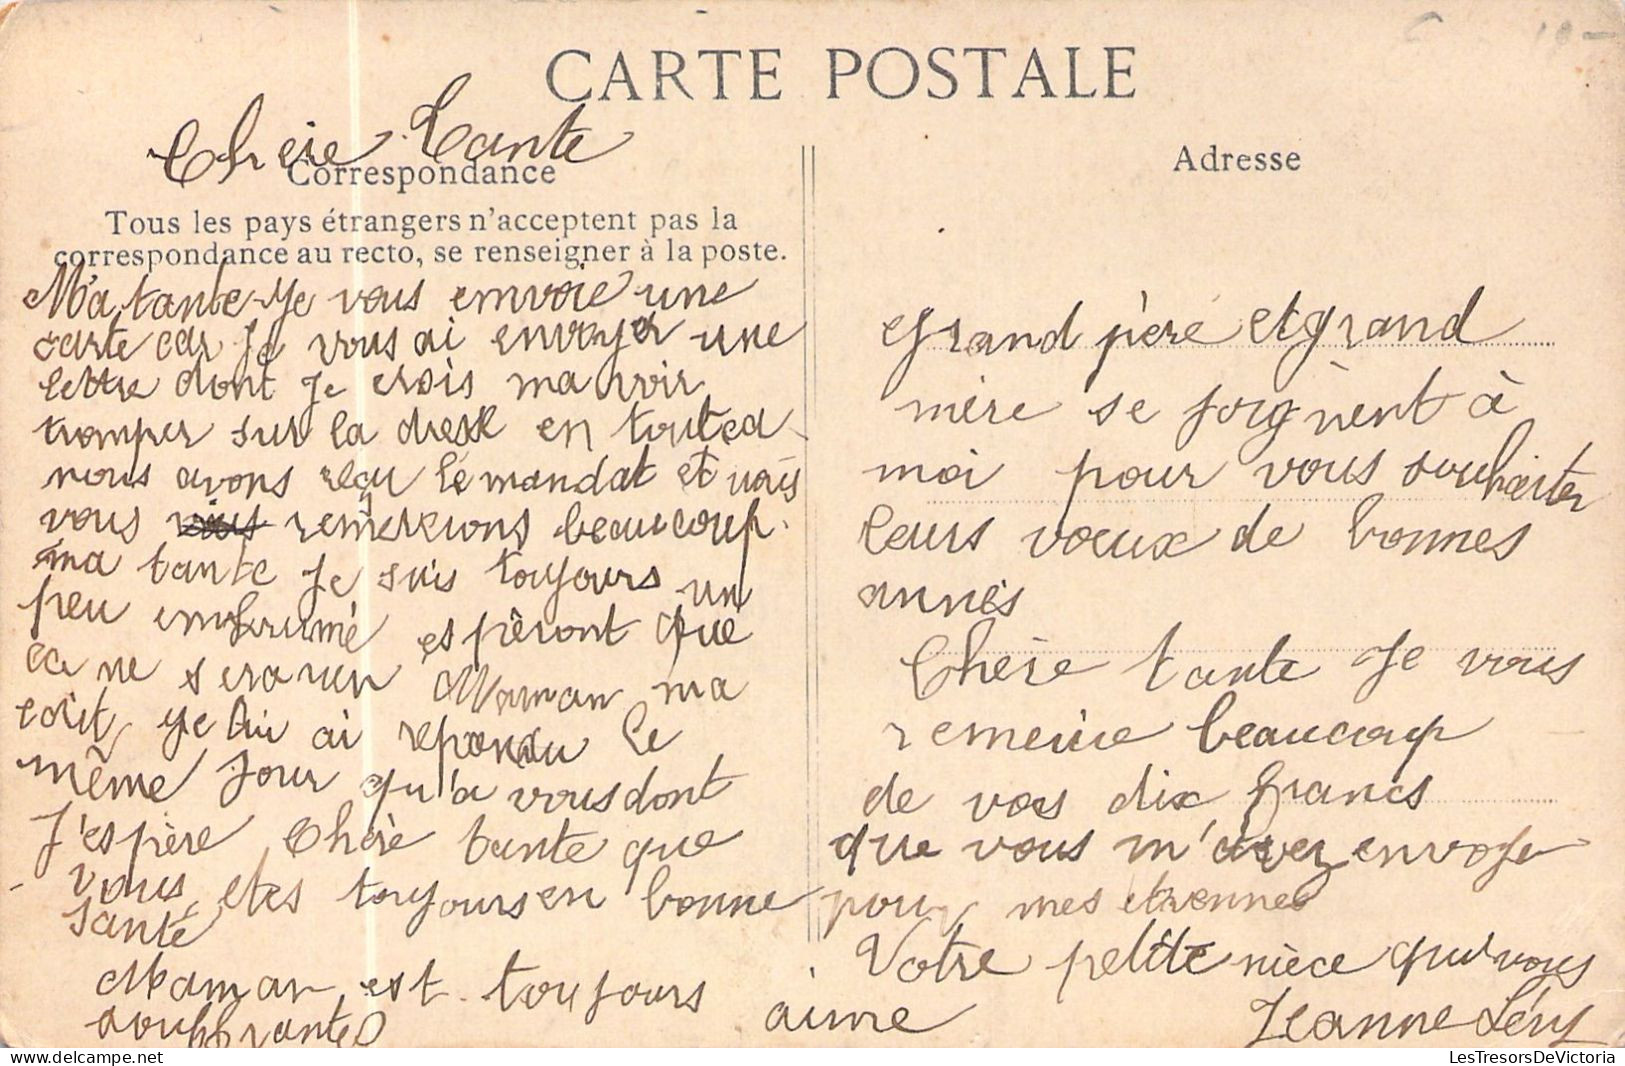 CARTE POSTALE
Chère Tante
Correspondance
Tous les pays étrangers n'acceptent pas la
correspondance au recto, se renseigner à la poste.
Ma tante Je vous envoie une
carte car Je vous ai envoyer une
lettre dont Je crois mavoir
tromper sur la dresse en tout ca
nous avons reçu le mandat et nous
vous remercions beaucoup.
ma tante Je suis toujours un
peu emfrumé espèront que
ca ne sera rien Maman ma
écrit, Je lui ai repondu le
même Jour qu'a vous dont
J'espère Chère tante que
vous etes toujours en bonne
santé
Maman est toujours
souffrante
Adresse
Grand pèré et grand
mère se joignent à
moi pour vous souhaiter
leurs voeux de bonnes
annés
Chère tante Je vous
remercie beaucoup
de vos dix francs
que vous m'avez envoye
pour mes étrennes
Votre petite nièce qui vous
aime Jeanne Lévy
LesTresorsDeVictoria